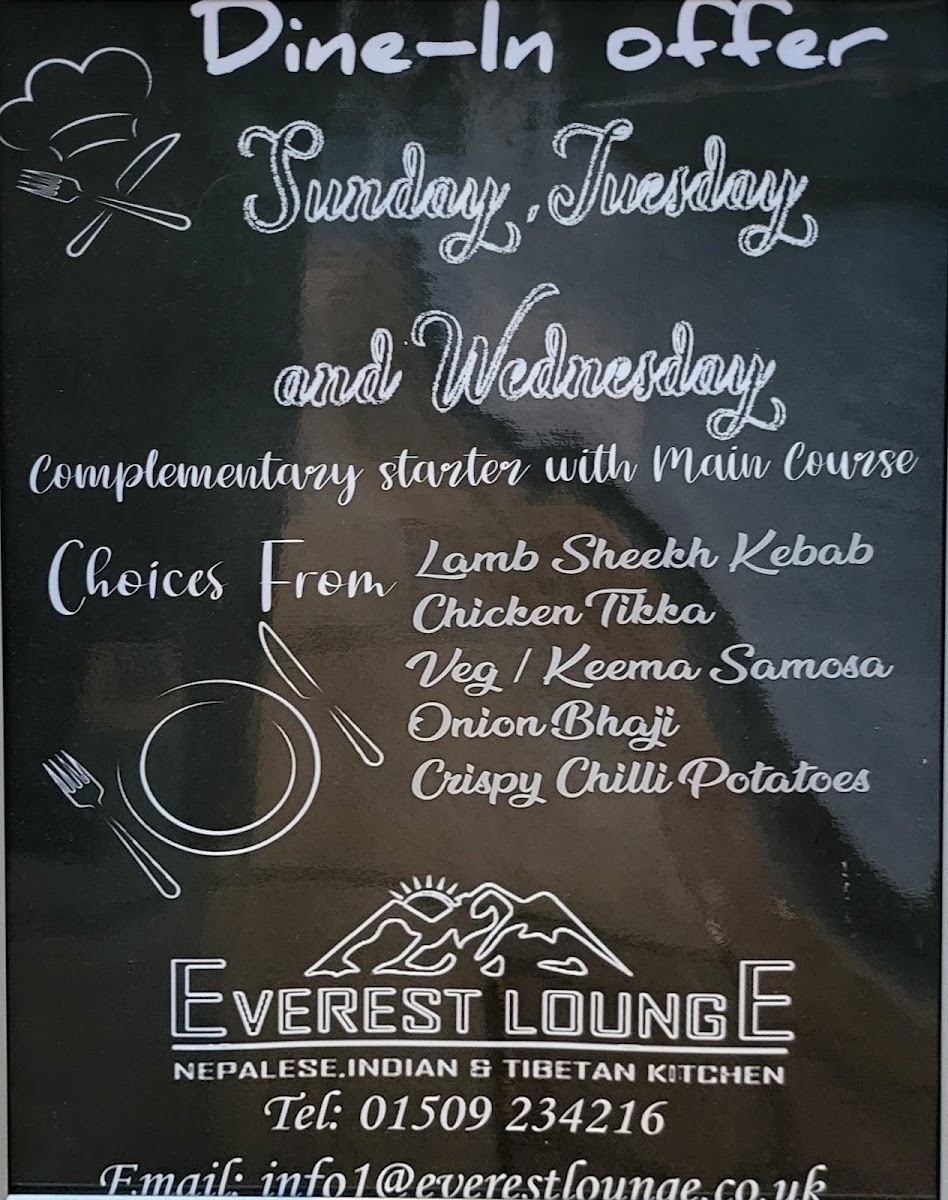 Dine-In offer
Sunday, Tuesday
and Wednesday
Complementary starter with Main Course
Choices From
Lamb Sheekh Kebab
Chicken Tikka
Veg / Keema Samosa
Onion Bhaji
Crispy Chilli Potatoes
EVEREST LOUNGE
NEPALESE.INDIAN & TIBETAN KITCHEN
Tel: 01509 234216
Email: info1@everestlounge.co.uk